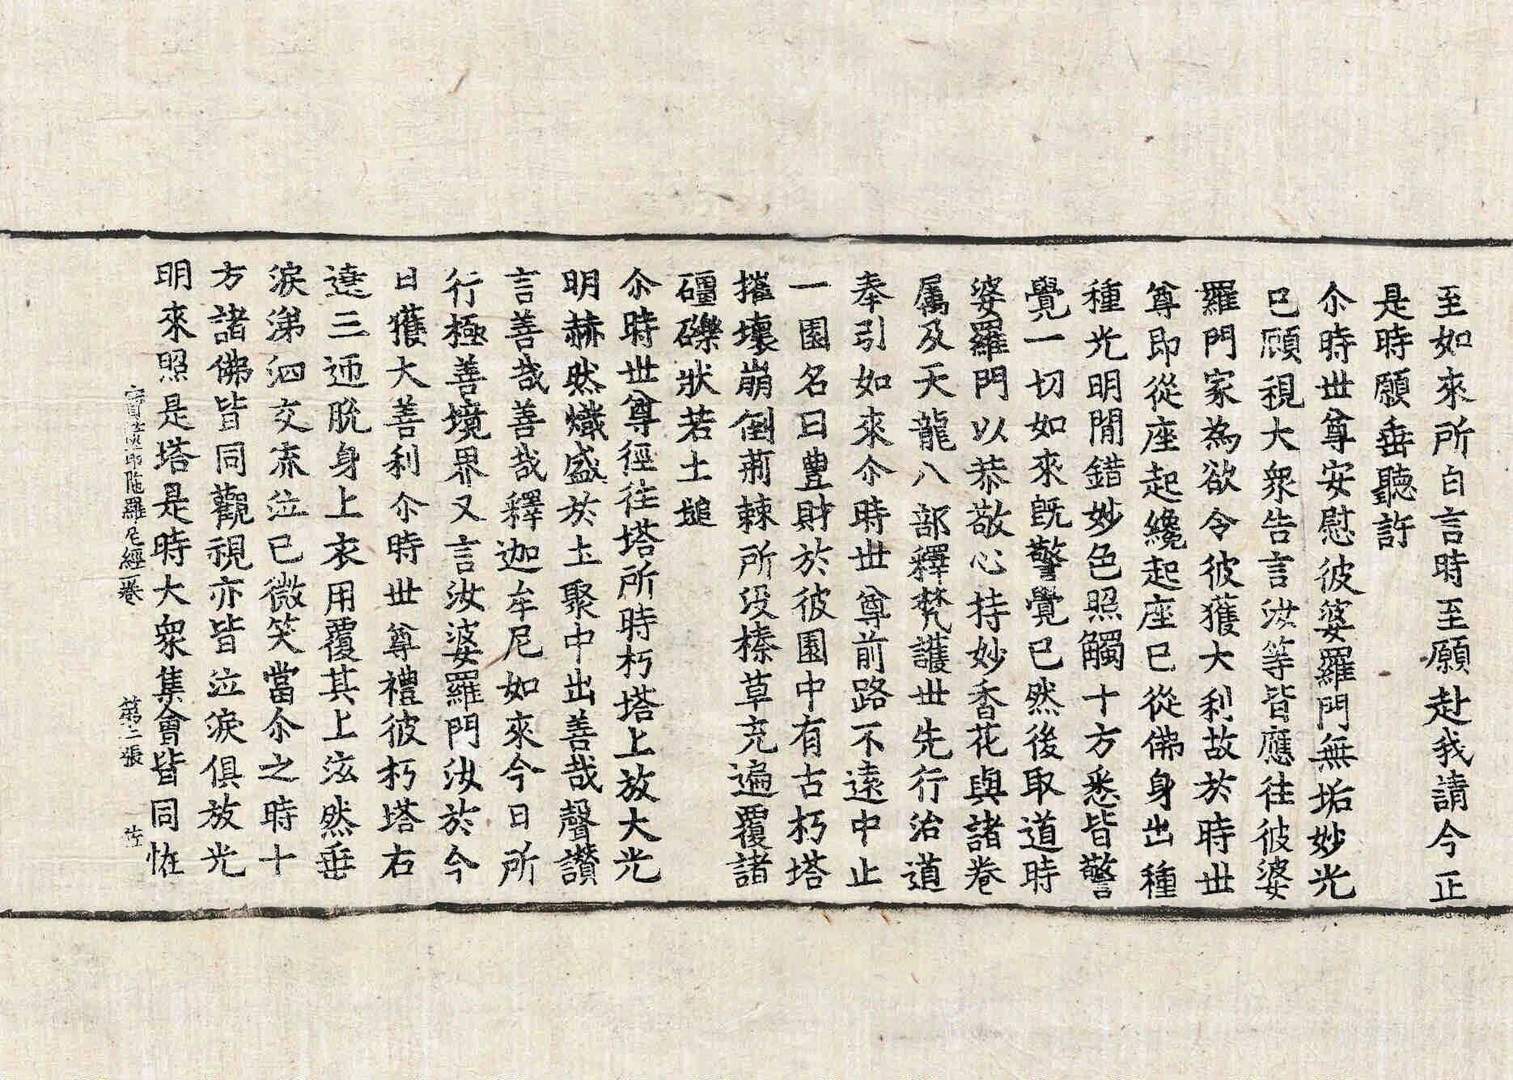 至如來所白言時至願赴我請今正
是時願垂聽許
尒時世尊安慰彼婆羅門無垢妙光
已顧視大衆告言汝等皆應往彼婆
羅門家為欲令彼獲大利故於時世
尊即從座起纔起座已從佛身出種
種光明間錯妙色照觸十方悉皆警
覺一切如來既警覺已然後取道時
婆羅門以恭敬心持妙香花與諸眷
属及天龍八部釋梵護世先行治道
奉引如來尒時世尊前路不遠中止
一園名曰豊財於彼園中有古朽塔
摧壞崩倒荊棘所没榛草充遍覆諸
礓礫狀若土䭔
尒時世尊徑往塔所時朽塔上放大光
明赫然熾盛於土聚中出善哉聲讃
言善哉善哉釋迦牟尼如來今日所
行極善境界又言汝婆羅門汝於今
日獲大善利尒時世尊禮彼朽塔右
遶三迊脫身上衣用覆其上泫然垂
淚涕泗交流泣已微笑當尒之時十
方諸佛皆同觀視亦皆泣淚俱放光
明來照是塔是時大衆集會皆同恠
寶篋印陁羅尼經卷 第二張 㘴